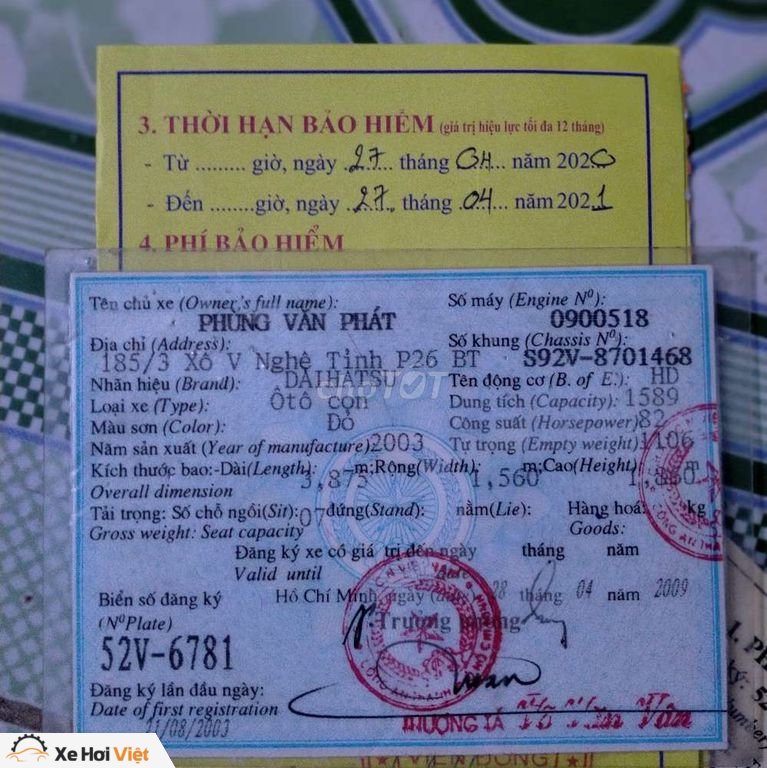 3. THỜI HẠN BẢO HIỂM (giá trị hiệu lực tối đa 12 tháng)
- Từ ......... giờ, ngày .27. tháng 04... năm 2020
- Đến ........giờ, ngày .27. tháng .04... năm 2021
4. PHÍ BẢO HIỂM
Tên chủ xe (Owner's full name): Số máy (Engine Nº):
PHÙNG VĂN PHÁT 0900518
Địa chỉ (Address): Số khung (Chassis Nº):
185/3 Xô V Nghệ Tỉnh P26 BT S92V-8701468
Nhãn hiệu (Brand): DAIHATSU Tên động cơ (B. of E.): HD
Loại xe (Type): Ôtô con Dung tích (Capacity): 1589
Màu sơn (Color): Đỏ Công suất (Horsepower) 82
Năm sản xuất (Year of manufacture) 2003 Tự trọng (Empty weight) 1106
Kích thước bao:-Dài(Length): -m;Rộng(Width): m;Cao(Height):
Overall dimension 3,875 1,560
Tải trọng: Số chỗ ngồi(Sit): 07 đứng(Stand): nằm(Lie): Hàng hoá: kg
Gross weight: Seat capacity Goods:
Đăng ký xe có giá trị đến ngày tháng năm
Valid until
Biển số đăng ký Hồ Chí Minh, ngày 28 tháng 04 năm 2009
(NºPlate) Trưởng phòng
52V-6781
Đăng ký lần đầu ngày:
Date of first registration
11/08/2003 THƯỢNG TÁ Võ Văn Vân
Xe Hơi Việt
CHỢ TỐT
CÔNG AN THÀNH
CÔNG AN THÀNH
1. PH